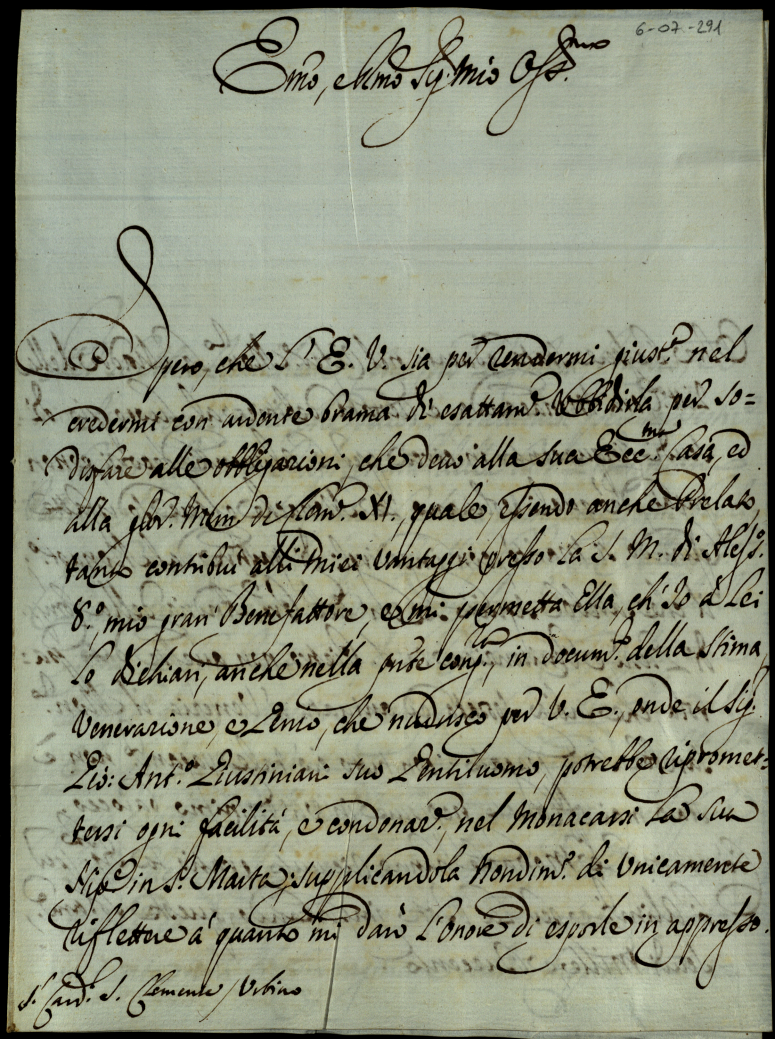 6-07-291
Emo, e Rmo Sig. mio Oss.mo
Spero, che L' E. V. sia per rendermi giust.a nel
credermi con ardente brama di esattam.e Vbbidirla per so=
disfare alle obbligazioni, che devo alla sua Ecc.ma Casa, ed
alla glor. Mem di Clem.e XI., quale, essendo anche Prelato,
tanto contribuì alli miei vantaggi presso La S. M. di Aless.o
8.o, mio gran Benefattore, e mi permetta Ella, ch' Io à Lei
Lo dichiari, anche nella pnte cong.ra, in docum.o della stima,
Venerazione, e Zelo, che nudrisco per V. E., onde il Sig.
Gio: Ant.o Giustiniani suo Gentiluomo, potrebbe ripromet=
tersi ogni facilità, e condonar.e, nel Monacarsi La sua
Nip.e in S. Marta; supplicandola nondim.o di Vnicamente
riflettere à quanto mi darò L'onore di esporle in appresso.
S.r Card.l S. Clemente / Urbino